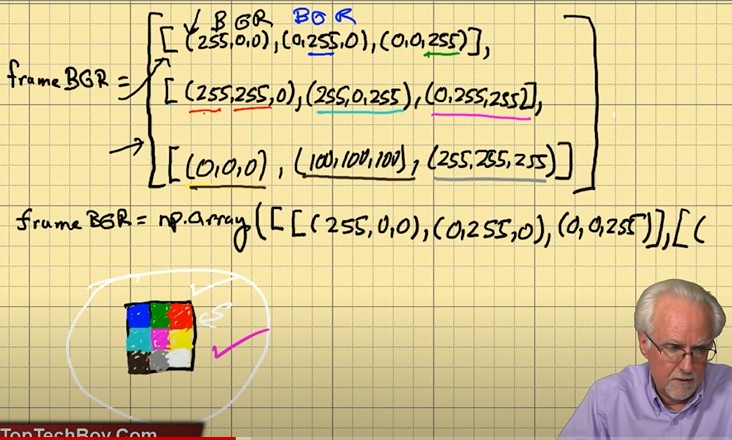 BGR BGR
[[(255,0,0),(0,255,0),(0,0,255)],
frameBGR =
[(255,255,0),(255,0,255),(0,255,255],
[(0,0,0),(100,100,100),(255,255,255)]]
frameBGR = np.array([[(255,0,0),(0,255,0),(0,0,255)],[(
TopTechBoy.Com